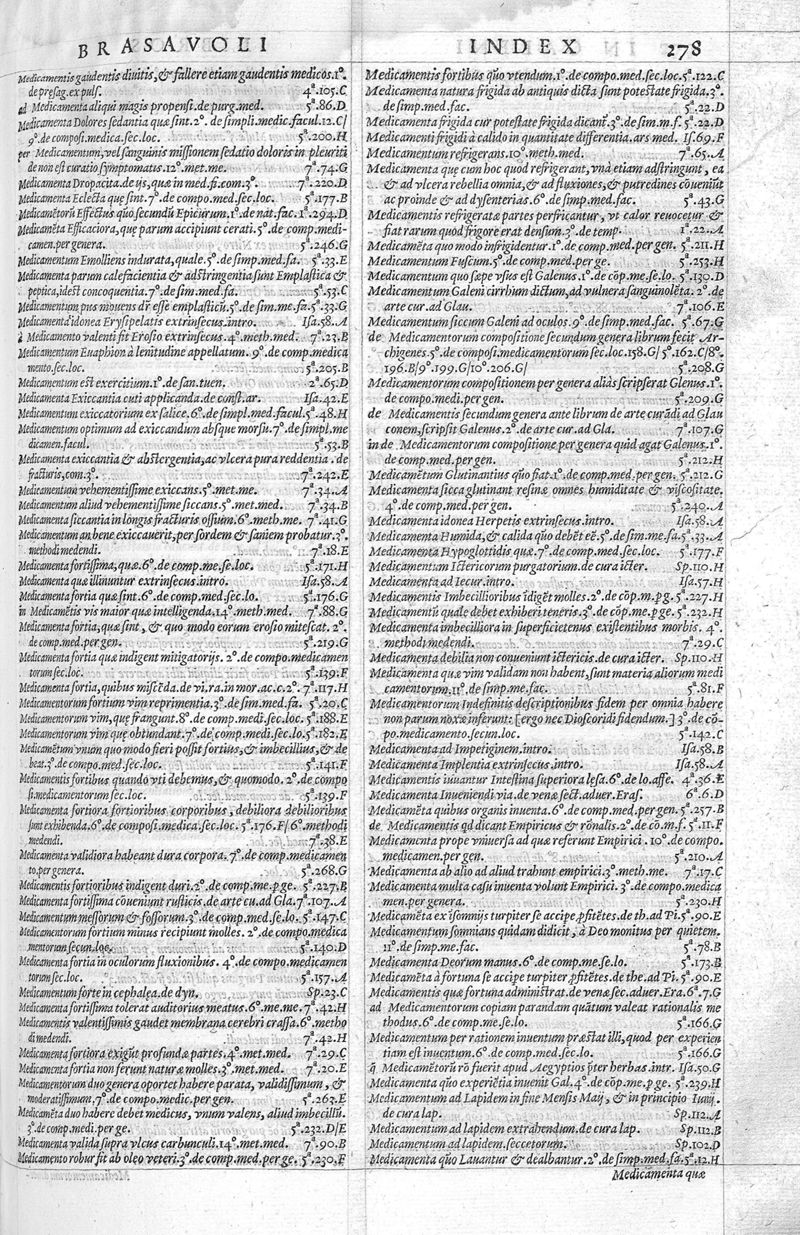 BRASAVOLI
Medicamentis gaudentis diuitis, & fallere etiam gaudentis medicos. 1°.
de præsag. ex puls. 4ª.105.C
ad Medicamenta aliqui magis propensi. de purg. med. 5ª.86.D
Medicamenta Dolores sedantia quæ sint. 2°. de simpli. medic. facul. 12.C/
9°. de composi. medica. sec. loc. 5ª.200.H
per Medicamentum, vel sanguinis missionem sedatio doloris in pleuriti
de non est curatio symptomatis. 12°. met. me. 7ª.74.G
Medicamenta Dropacita. de ijs, quæ in med. fi. com. 3°. 7ª.220.D
Medicamenta Eclecta quę sint. 7°. de compo. med. sec. loc. 5ª.177.B
Medicamētorū Effectus quō secundū Epicurum. 1°. de nat. fac. 1ª.294.D
Medicamēta Efficaciora, quę parum accipiunt cerati. 5°. de comp. medi-
camen. per genera. 5ª.246.G
Medicamentum Emolliens indurata, quale. 5°. de simp. med. fa. 5ª.33.E
Medicamenta parum calefacientia & adstringentia sunt Emplastica &
peptica, idest concoquentia. 7°. de sim. med. fa. 5ª.53.C
Medicamentum pus mouens dr̄ esse emplasticū. 5°. de sim. me. fa. 5ª.33.G
Medicamenta idonea Erysipelatis extrinsecus. intro. Isa.58.A
à Medicamento valenti fit Erosio extrinsecus. 4°. meth. med. 7ª.23.B
Medicamentum Euaphion à lenitudine appellatum. 9°. de comp. medica
mento. sec. loc. 5ª.205.B
Medicamentum est exercitium. 1°. de san. tuen. 2ª.65.D
Medicamenta Exiccantia cuti applicanda. de const. ar. Isa.42.E
Medicamentum exiccatorium ex salice. 6°. de simpl. med. facul. 5ª.48.H
Medicamentum optimum ad exiccandum absque morsu. 7°. de simpl. me
dicamen. facul. 5ª.53.B
Medicamenta exiccantia & abstergentia, ac vlcera pura reddentia. de
fracturis, com. 3°. 7ª.242.E
Medicamentum vehementissime exiccans. 5°. met. me. 7ª.34.A
Medicamentum aliud vehementissime siccans. 5°. met. med. 7ª.34.B
Medicamenta siccantia in longis fracturis ossium. 6°. meth. me. 7ª.41.G
Medicamentum an bene exiccauerit, per sordem & saniem probatur. 3°.
methodi medendi. 7ª.18.E
Medicamenta fortissima, quæ. 6°. de comp. me. se. loc. 5ª.171.H
Medicamenta quæ illinuntur extrinsecus. intro. Isa.58.A
Medicamenta fortia quæ sint. 6°. de comp. med. sec. lo. 5ª.176.G
in Medicamētis vis maior quæ intelligenda. 14°. meth. med. 7ª.88.G
Medicamenta fortia, quæ sint, & quo modo eorum erosio mitescat. 2°.
de comp. med. per gen. 5ª.219.G
Medicamenta fortia quæ indigent mitigatorijs. 2°. de compo. medicamen
torum sec. loc. 5ª.139.F
Medicamenta fortia, quibus miscēda. de vi. ra. in mor. ac. c. 2°. 7ª.117.H
Medicamentorum fortium vim reprimentia. 3°. de sim. med. fa. 5ª.20.C
Medicamentorum vim, quę frangunt. 8°. de comp. medi. sec. loc. 5ª.188.E
Medicamentorum vim quę obtundant. 7°. de comp. medi. sec. lo. 5ª.182.E
Medicamētum vnum quo modo fieri possit fortius, & imbecillius, & de
beat. 3°. de compo. med. sec. loc. 5ª.141.F
Medicamentis fortibus quando vti debemus, & quomodo. 2°. de compo
si. medicamentorum sec. loc. 5ª.139.F
Medicamenta fortiora fortioribus corporibus, debiliora debilioribus
sunt exhibenda. 6°. de composi. medica. sec. loc. 5ª.176.F/ 6°. methodi
medendi. 7ª.38.E
Medicamenta validiora habeant dura corpora. 7°. de comp. medicamen
to. per genera. 5ª.268.G
Medicamentis fortioribus indigent duri. 2°. de comp. me. pge. 5ª.227.B
Medicamenta fortissima cōueniunt rusticis. de arte cu. ad Gla. 7ª.107.A
Medicamentum messorum & fossorum. 3°. de comp. med. se. lo. 5ª.147.C
Medicamentorum fortium minus recipiunt molles. 2°. de comp. medica
mentorum secun. loc. 5ª.140.D
Medicamenta fortia in oculorum fluxionibus. 4°. de comp. medicamen
torum sec. loc. 5ª.157.A
Medicamentum forte in cephalęa. de dyn. Sp.23.C
Medicamenta fortissima tolerat auditorius meatus. 6°. me. me. 7ª.42.H
Medicamentis valentissimis gaudet membrana cerebri crassa. 6°. metho
di medendi. 7ª.42.H
Medicamenta fortiora exigūt profundæ partes. 4°. met. med. 7ª.29.C
Medicamenta fortia non ferunt naturæ molles. 3°. met. med. 7ª.20.E
Medicamentorum duo genera oportet habere parata, validissimum, &
moderatissimum. 7°. de comp. medic. per gen. 5ª.263.E
Medicamēta duo habere debet medicus, vnum valens, aliud imbecillū.
3°. de comp. medi. per ge. 5ª.232.D/E
Medicamenta valida supra vlcus carbunculi. 14°. met. med. 7ª.90.B
Medicamento robur fit ab oleo veteri. 3°. de comp. med. per ge. 5ª.230.F
INDEX 278
Medicamentis fortibus quō vtendum. 1°. de compo. med. sec. loc. 5ª.122.C
Medicamenta natura frigida ab antiquis dicta sunt potestate frigida. 3°.
de simp. med. fac. 5ª.22.D
Medicamenta frigida cur potestate frigida dicant̄. 3°. de sim. m. f. 5ª.22.D
Medicamenti frigidi à calido in quantitate differentia. ars med. Isa.69.F
Medicamentum refrigerans. 10°. meth. med. 7ª.65.A
Medicamenta quę cum hoc quod refrigerant, vnà etiam adstringunt, ea
& ad vlcera rebellia omnia, & ad fluxiones, & putredines cōueniūt
ac proinde & ad dysenterias. 6°. de simp. med. fac. 5ª.43.G
Medicamentis refrigeratæ partes perfricantur, vt calor reuocetur &
fiat rarum quod frigore erat densum. 2°. de temp. 1ª.22.A
Medicamēta quo modo infrigidentur. 1°. de comp. med. per gen. 5ª.211.H
Medicamentum Fuscum. 5°. de comp. med. per ge. 5ª.253.H
Medicamentum quo sæpe vsus est Galenus. 1°. de cōp. me. se. lo. 5ª.130.D
Medicamentum Galeni cirrhum dictum, ad vulnera sanguinolēta. 2°. de
arte cur. ad Glau. 7ª.106.E
Medicamentum siccum Galeni ad oculos. 9°. de simp. med. fac. 5ª.67.G
de Medicamentorum compositione secundum genera librum fecit Ar-
chigenes. 5°. de composi. medicamentorum sec. loc. 158.G/ 5ª.162.C/8°.
196.B/9°.199.G/10°.206.G/ 5ª.208.G
Medicamentorum compositionem per genera aliàs scripserat Glenus. 1°.
de compo. medi. per gen. 5ª.209.G
de Medicamentis secundum genera ante librum de arte curādi ad Glau
conem, scripsit Galenus. 2°. de arte cur. ad Gla. 7ª.107.G
in de Medicamentorum compositione per genera quid agat Galenus. 1°.
de comp. med. per gen. 5ª.212.H
Medicamētum Glutinantius quō fiat. 1°. de comp. med. per gen. 5ª.212.G
Medicamenta sicca glutinant resinæ omnes humiditate & viscositate.
4°. de comp. med. per gen. 5ª.240.A
Medicamenta idonea Herpetis extrinsecus. intro. Isa.58.A
Medicamenta Humida, & calida quō debēt eē. 5°. de sim. me. fa. 5ª.33.A
Medicamenta Hypoglottidis quæ. 7°. de comp. med. sec. loc. 5ª.177.F
Medicamentum Ictericorum purgatorium. de cura icter. Sp.110.H
Medicamenta ad Iecur. intro. Isa.57.H
Medicamentis Imbecillioribus īdigēt molles. 2°. de cōp. m. pg. 5ª.227.H
Medicamentū quale debet exhiberi teneris. 3°. de cōp. me. pge. 5ª.232.H
Medicamenta imbecilliora in superficietenus existentibus morbis. 4°.
methodi medendi. 7ª.29.C
Medicamenta debilia non conueniunt ictericis. de cura icter. Sp.110.H
Medicamenta quæ vim validam non habent, sunt materia aliorum medi
camentorum. 11°. de simp. me. fac. 5ª.81.F
Medicamentorum Indefinitis descriptionibus fidem per omnia habere
non parum noxæ inferunt: [ergo nec Dioscoridi fidendum.] 3°. de cō-
po. medicamento. secun. loc. 5ª.142.C
Medicamenta ad Impetiginem. intro. Isa.58.B
Medicamenta Implentia extrinsecus. intro. Isa.58.A
Medicamentis iuuantur Intestina superiora lęsa. 6°. de lo. affe. 4ª.36.E
Medicamenta Inueniendi via. de venæ sect. aduer. Eras. 6ª.6.D
Medicamēta quibus organis inuenta. 6°. de comp. med. per gen. 5ª.257.B
de Medicamentis qd dicant Empiricus & rōnalis. 2°. de cō. m. s. 5ª.11.F
Medicamenta prope vniuersa ad quæ referunt Empirici. 10°. de compo.
medicamen. per gen. 5ª.210.A
Medicamenta ab alio ad aliud trahunt empirici. 3°. meth. me. 7ª.17.C
Medicamenta multa casu inuenta volunt Empirici. 3°. de comp. medica
men. per genera. 5ª.230.H
Medicamēta ex īsomnijs turpiter se accipe pfitētes. de th. ad Pi. 5ª.90.E
Medicamentum somnians quidam didicit, à Deo monitus per quietem.
11°. de simp. me. fac. 5ª.78.B
Medicamenta Deorum manus. 6°. de comp. me. se. lo. 5ª.173.B
Medicamēta à fortuna se accipe turpiter pfitētes. de the. ad Pi. 5ª.90.E
Medicamentis quæ fortuna administrat. de venæ sec. aduer. Era. 6ª.7.G
ad Medicamentorum copiam parandam quātum valeat rationalis me
thodus. 6°. de comp. me. se. lo. 5ª.166.G
Medicamentum per rationem inuentum præstat illi, quod per experien
tiam est inuentum. 6°. de comp. med. sec. lo. 5ª.166.G
Medicamētorū rō fuerit apud Aegyptios pter herbas. intr. Isa.50.G
Medicamēta quō experiētia inuenit Gal. 4°. de cōp. me. pge. 5ª.239.H
Medicamentum ad Lapidem in fine Mensis Maij, & in principio Iunij.
de cura lap. Sp.112.A
Medicamentum ad lapidem extrahendum. de cura lap. Sp.112.B
Medicamentum ad lapidem. seccetorum. Sp.102.D
Medicamenta quō Lauantur & dealbantur. 2°. de simp. med. fa. 5ª.12.H
Medicamenta quæ